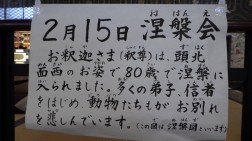 2月15日 涅槃会
ねはんえ
お釈迦さま(釈尊)は、頭北
面西のお姿で80歳で涅槃に
入られました。多くの弟子、信者
をはじめ、動物たちもがお別れ
を悲しんでいます。(この図は涅槃図といいます)